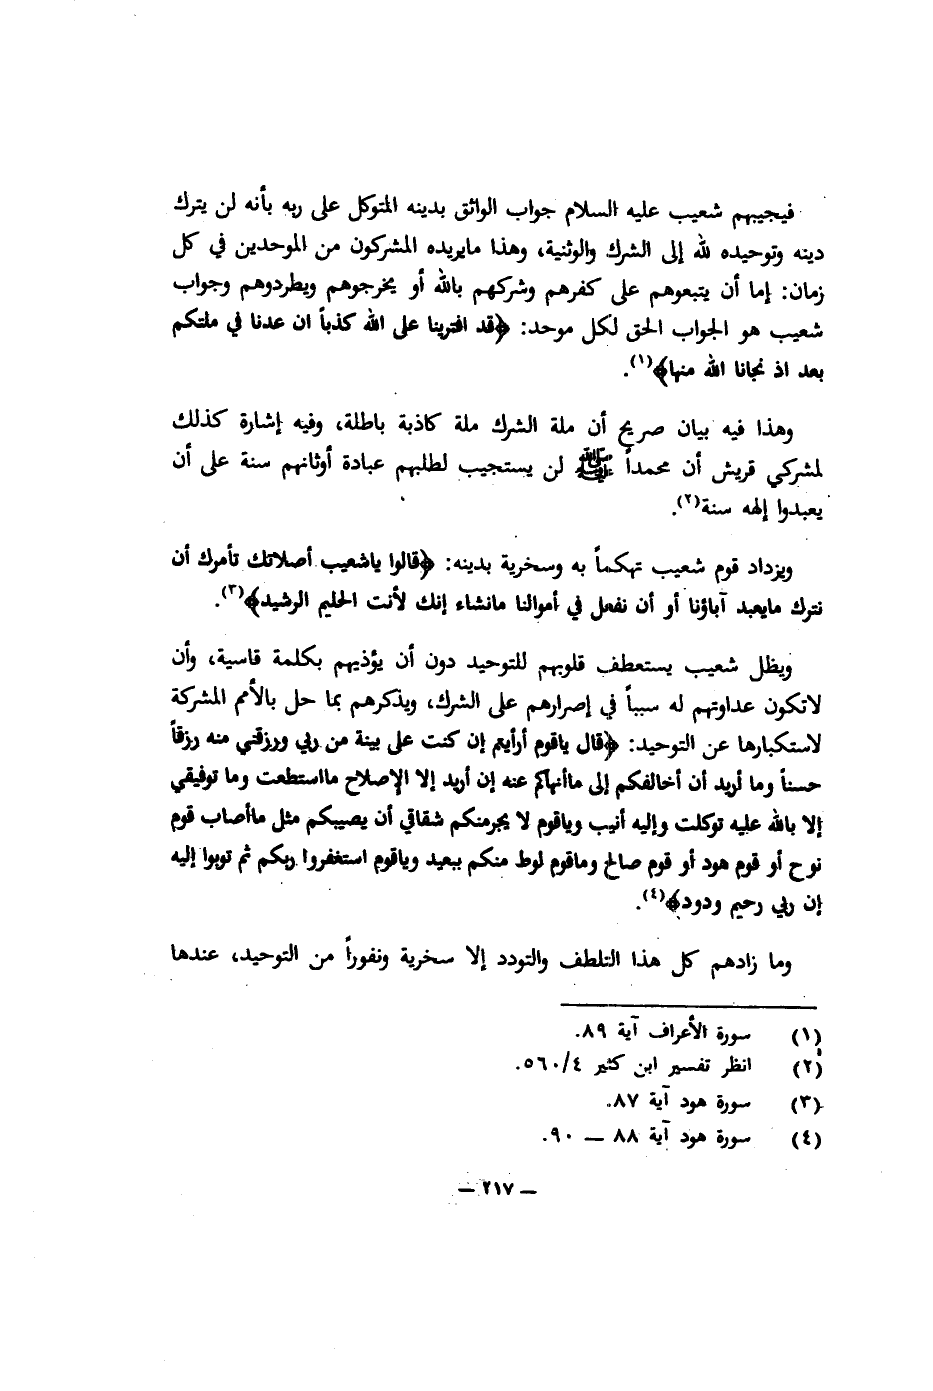 فيجيبهم شعيب عليه السلام جواب الواثق بدينه المتوكل على ربه بأنه لن يترك
دينه وتوحيده لله إلى الشرك والوثنية، وهذا مايريده المشركون من الموحدين في كل
زمان: إما أن يتبعوهم على كفرهم وشركهم بالله أو يخرجوهم ويطردوهم وجواب
شعيب هو الجواب الحق لكل موحد: ﴿قد افترينا على الله كذباً ان عدنا في ملتكم
بعد اذ نجانا الله منها﴾(١).
وهذا فيه بيان صريح أن ملة الشرك ملة كاذبة باطلة، وفيه إشارة كذلك
لمشركي قريش أن محمداً ﷺ لن يستجيب لطلبهم عبادة أوثانهم سنة على أن
يعبدوا إلهه سنة(٢).
ويزداد قوم شعيب تهكماً به وسخرية بدينه: ﴿قالوا ياشعيب أصلاتك تأمرك أن
نترك مايعبد آباؤنا أو أن نفعل في أموالنا مانشاء إنك لأنت الحليم الرشيد﴾(٣).
ويظل شعيب يستعطف قلوبهم للتوحيد دون أن يؤذيهم بكلمة قاسية، وأن
لاتكون عداوتهم له سبباً في إصرارهم على الشرك، ويذكرهم بما حل بالأمم المشركة
لاستكبارها عن التوحيد: ﴿قال ياقوم أرأيتم إن كنت على بينة من ربي ورزقني منه رزقاً
حسناً وما أريد أن أخالفكم إلى ماأنهاكم عنه إن أريد إلا الإصلاح مااستطعت وما توفيقي
إلا بالله عليه توكلت وإليه أنيب وياقوم لا يجرمنكم شقاقي أن يصيبكم مثل ماأصاب قوم
نوح أو قوم هود أو قوم صالح وماقوم لوط منكم ببعيد وياقوم استغفروا ربكم ثم توبوا إليه
إن ربي رحيم ودود﴾(٤).
وما زادهم كل هذا التلطف والتودد إلا سخرية ونفوراً من التوحيد، عندها
(١) سورة الأعراف آية ٨٩.
(٢) انظر تفسير ابن كثير ٥٦٠/٤.
(٣) سورة هود آية ٨٧.
(٤) سورة هود آية ٨٨ — ٩٠.
— ٢١٧ —